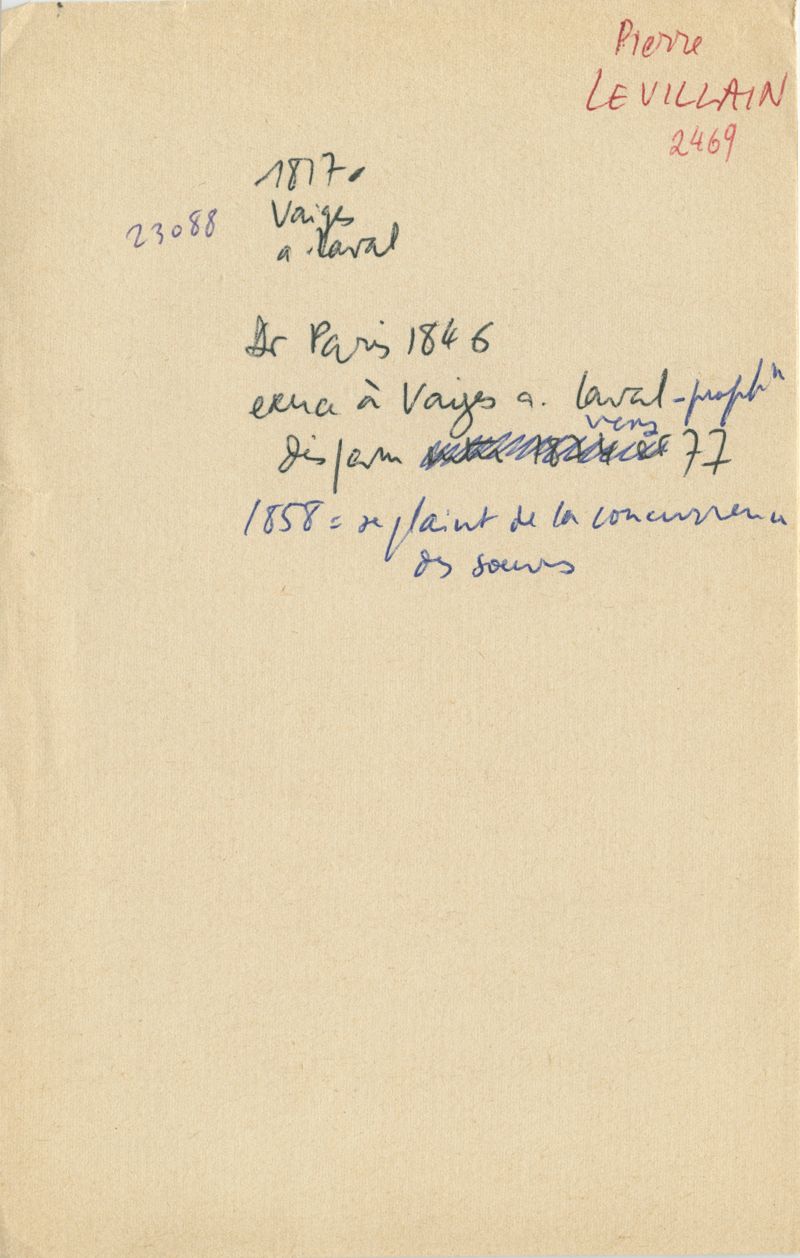 Pierre
LEVILLAIN
2469
1817.
23088
Vaiges
a. Laval
Dr Paris 1846
exerce à Vaiges a. Laval -
vers
disparu 77
1858 = se plaint de la concurrence
des soeurs